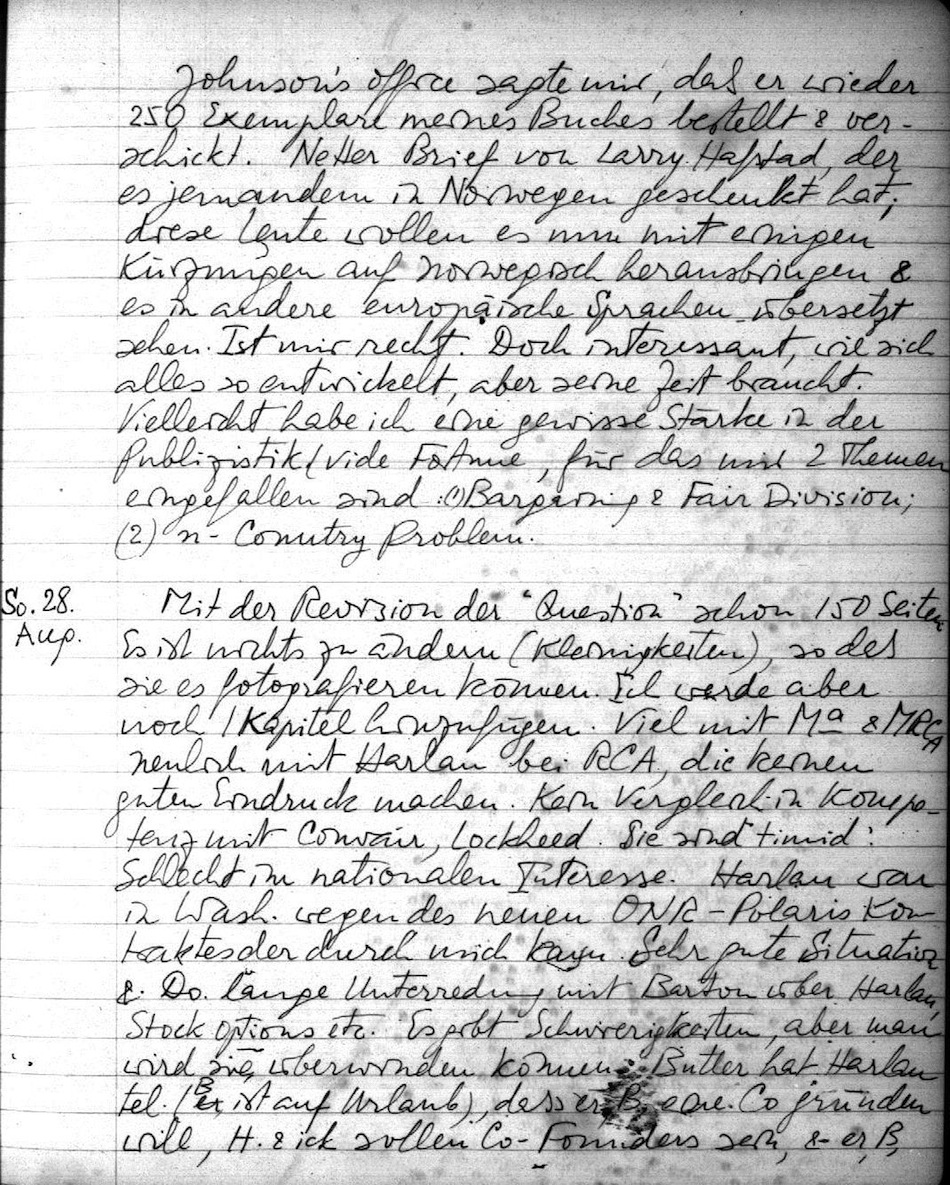 Johnson's office sagte mir, daß er wieder
250 Exemplare meines Buches bestellt & ver-
schickt. Netter Brief von Larry Hafstad, der
es jemandem in Norwegen geschenkt hat;
diese Leute wollen es nun mit einigen
Kürzungen auf norwegisch herausbringen &
es in andere europäische Sprachen übersetzt
sehen. Ist mir recht. Doch interessant, wie sich
alles so entwickelt, aber seine Zeit braucht.
Vielleicht habe ich eine gewisse Stärke in der
Publizistik (vide Fortune, für das mir 2 Themen
eingefallen sind: (1) Bargaining & Fair Division;
(2) n-Country Problem.
So. 28.
Aug.
Mit der Revision der "Question" schon 150 Seiten
Es ist nichts zu ändern (Kleinigkeiten), so daß
sie es fotografieren können. Ich werde aber
noch 1 Kapitel hinzufügen. Viel mit Ma & MRCA
neulich mit Harlan bei RCA, die keinen
guten Eindruck machen. Kein Vergleich in Kompe-
tenz mit Convair, Lockheed. Sie sind "timid".
Schlecht im nationalen Interesse. Harlan war
in Wash. wegen des neuen ONR-Polaris Kon-
traktes der durch mich kam. Sehr gute Situation
&. Do. lange Unterredung mit Barton über Harlan,
Stock options etc. Es gibt Schwierigkeiten, aber man
wird sie überwinden können. Butler hat Harlan
tel. (B ist auf Urlaub), dass er, B, eine Co gründen
will, H. & ich sollen Co-Founders sein, & er, B,